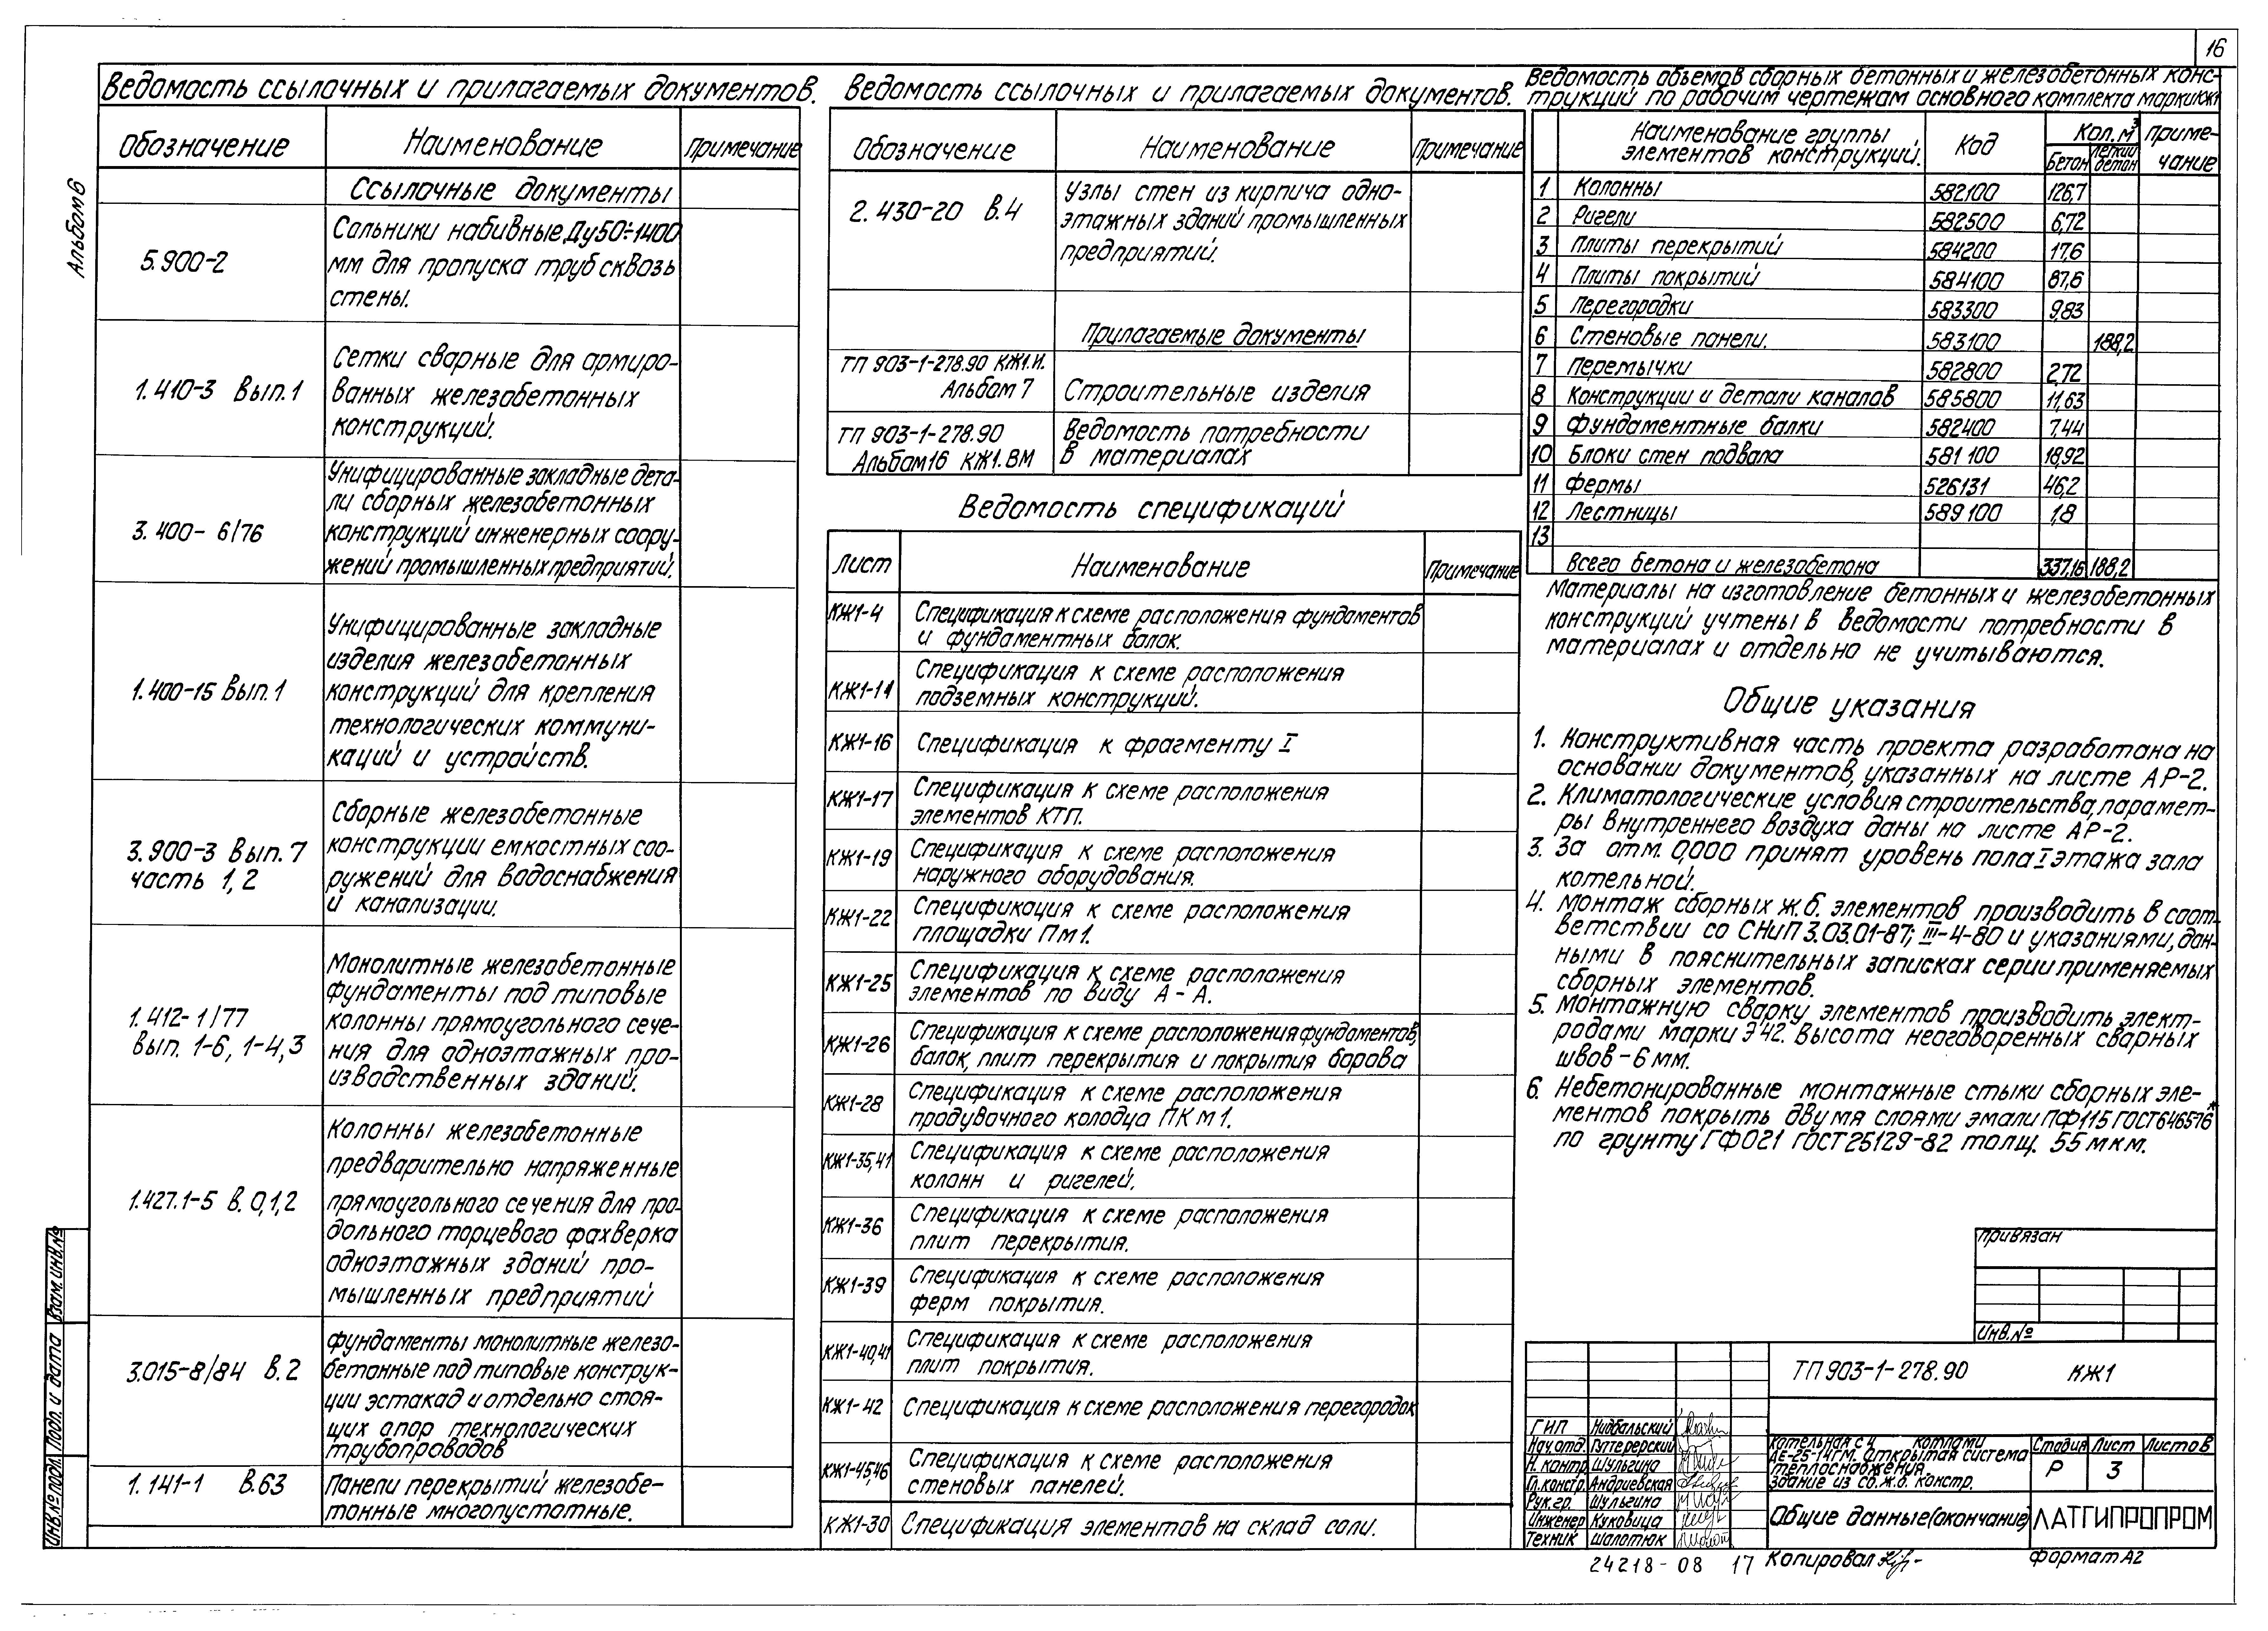 16
Альбом 6
Ведомость ссылочных и прилагаемых документов.
Обозначение Наименование Примечание
Ссылочные документы
5.900-2
Сальники набивные Ду50÷1400
мм для пропуска труб сквозь
стены.
1.410-3 Вып.1
Сетки сварные для армиро-
ванных железобетонных
конструкций.
3.400-6/76
Унифицированные закладные дета-
ли сборных железобетонных
конструкций инженерных соору-
жений промышленных предприятий.
1.400-15 Вып.1
Унифицированные закладные
изделия железобетонных
конструкций для крепления
технологических коммуни-
каций и устройств.
3.900-3 Вып.7
часть 1,2
Сборные железобетонные
конструкции емкостных соо-
ружений для водоснабжения
и канализации.
1.412-1/77
вып. 1-6, 1-4,3
Монолитные железобетонные
фундаменты под типовые
колонны прямоугольного сече-
ния для одноэтажных про-
изводственных зданий.
1.427.1-5 в.0,1,2
Колонны железобетонные
предварительно напряженные
прямоугольного сечения для про-
дольного торцевого фахверка
одноэтажных зданий про-
мышленных предприятий
3.015-8/84 в.2
Фундаменты монолитные железо-
бетонные под типовые конструк-
ции эстакад и отдельно стоя-
щих опор технологических
трубопроводов
1.141-1 в.63
Панели перекрытий железобе-
тонные многопустотные.
Ведомость ссылочных и прилагаемых документов.
Обозначение Наименование Примечание
2.430-20 в.4
Узлы стен из кирпича одно-
этажных зданий промышленных
предприятий.
Прилагаемые документы
ТП 903-1-278.90 КЖ1.И.
Альбом 7 Строительные изделия
ТП 903-1-278.90
Альбом 16 КЖ1.ВМ
Ведомость потребности
в материалах
Ведомость спецификаций
Лист Наименование Примечание
КЖ1-4 Спецификация к схеме расположения фундаментов
и фундаментных балок.
КЖ1-14 Спецификация к схеме расположения
подземных конструкций.
КЖ1-16 Спецификация к фрагменту I
КЖ1-17 Спецификация к схеме расположения
элементов КТП.
КЖ1-19 Спецификация к схеме расположения
наружного оборудования.
КЖ1-22 Спецификация к схеме расположения
площадки Пм1.
КЖ1-25 Спецификация к схеме расположения
элементов по виду А-А.
КЖ1-26 Спецификация к схеме расположения фундаментов,
балок, плит перекрытия и покрытия борова
КЖ1-28 Спецификация к схеме расположения
продувочного колодца ПКм1.
КЖ1-35,41 Спецификация к схеме расположения
колонн и ригелей.
КЖ1-36 Спецификация к схеме расположения
плит перекрытия.
КЖ1-39 Спецификация к схеме расположения
ферм покрытия.
КЖ1-40,41 Спецификация к схеме расположения
плит покрытия.
КЖ1-42 Спецификация к схеме расположения перегородок
КЖ1-45,46 Спецификация к схеме расположения
стеновых панелей.
КЖ1-30 Спецификация элементов на склад соли.
Ведомость объемов сборных бетонных и железобетонных конс-
трукций по рабочим чертежам основного комплекта марки КЖ1
Наименование группы
элементов конструкций. Код Кол. м3 Приме-
чание
Бетон Легкий
бетон
1 Колонны 582100 126,7
2 Ригели 582500 6,72
3 Плиты перекрытий 584200 17,6
4 Плиты покрытий 584100 87,6
5 Перегородки 583300 9,83
6 Стеновые панели. 583100 188,2
7 Перемычки 582800 2,72
8 Конструкции и детали каналов 585800 11,63
9 Фундаментные балки 582400 7,44
10 Блоки стен подвала 581100 18,92
11 Фермы 526131 46,2
12 Лестницы 589100 1,8
13
Всего бетона и железобетона 337,16 188,2
Материалы на изготовление бетонных и железобетонных
конструкций учтены в Ведомости потребности в
материалах и отдельно не учитываются.
Общие указания
1. Конструктивная часть проекта разработана на
основании документов, указанных на листе АР-2.
2. Климатологические условия строительства, парамет-
ры внутреннего воздуха даны на листе АР-2.
3. За отм. 0,000 принят уровень пола I этажа зала
котельной.
4. Монтаж сборных ж.б. элементов производить в соот-
ветствии со СНиП 3.03.01-87; III-4-80 и указаниями, дан-
ными в пояснительных записках серии применяемых
сборных элементов.
5. Монтажную сварку элементов производить элект-
родами марки Э42. Высота неоговоренных сварных
швов-6мм.
6. Небетонированные монтажные стыки сборных эле-
ментов покрыть двумя слоями эмали ПФ115 ГОСТ6465-76*
по грунту ГФ021 ГОСТ 25129-82 толщ. 55 мкм.
Привязан
Инв.№
ТП 903-1-278.90 КЖ1
ГИП Нидбальский
Нач.отд. Гуттерерский
Н. контр. Шульгина
Гл.констр. Андриевская
Рук.гр. Шульгина
Инженер Куковица
Техник Шалотюк
Котельная с 4 котлами
ДЕ-25-14ГМ. Открытая система
теплоснабжения.
Здание из сб.ж.б. констр.
Стадия Лист Листов
Р 3
Общие данные (окончание)
ЛАТГИПРОПРОМ
24218-08 17 Копировал Формат А2
Взам. инв.№
Подп. и дата
Инв.№ подл.